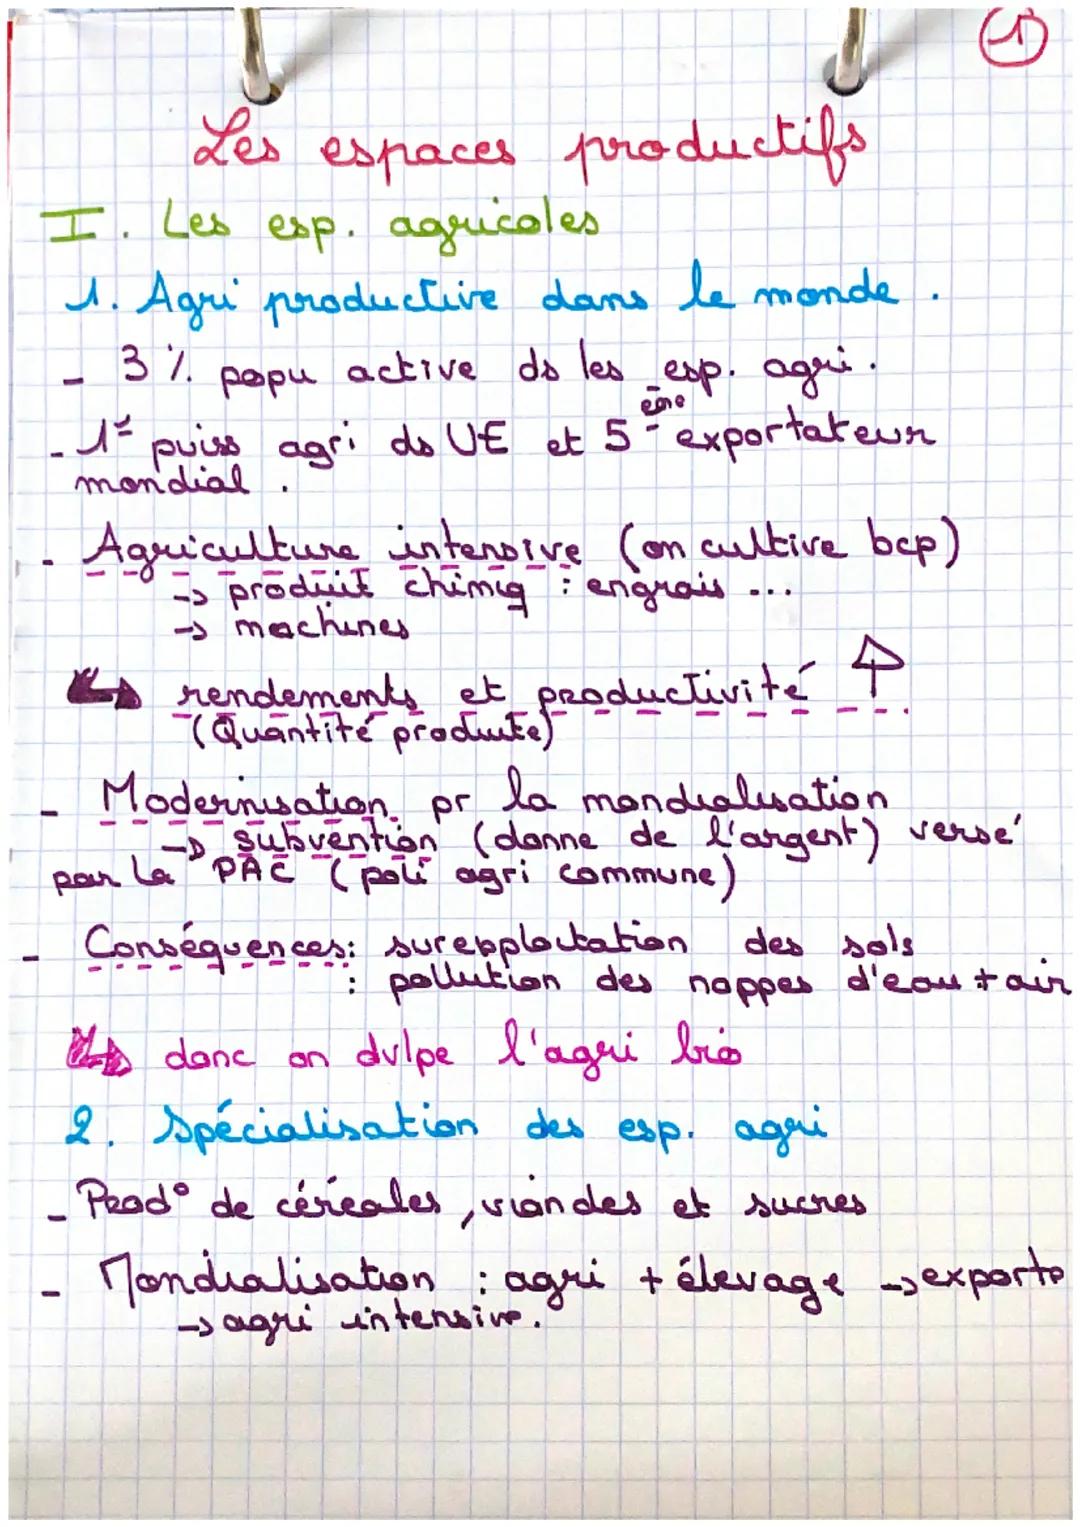 1
Les espaces productifs
I. Les esp. agricoles
1. Agri productive dans le monde.
- 3 % popu active ds les esp. agri.
- 1e puiss agri ds UE et 5ème exportateur
mondial.
- Agriculture intensive (on cultive bcp)
→ produit chimiq : engrais ...
→ machines
↳ rendements et productivité ↑
(Quantité produite)
- Modernisation pr la mondialisation
→ subvention (donne de l'argent) versé
par la PAC (poli agri commune)
- Conséquences: surexploitation des sols
: pollution des nappes d'eau + air
↳ donc on dvlpe l'agri bio
2. Spécialisation des esp. agri
- Prod° de céréales, viandes et sucres
- Mondialisation : agri + élevage → exporte
→ agri intensive.